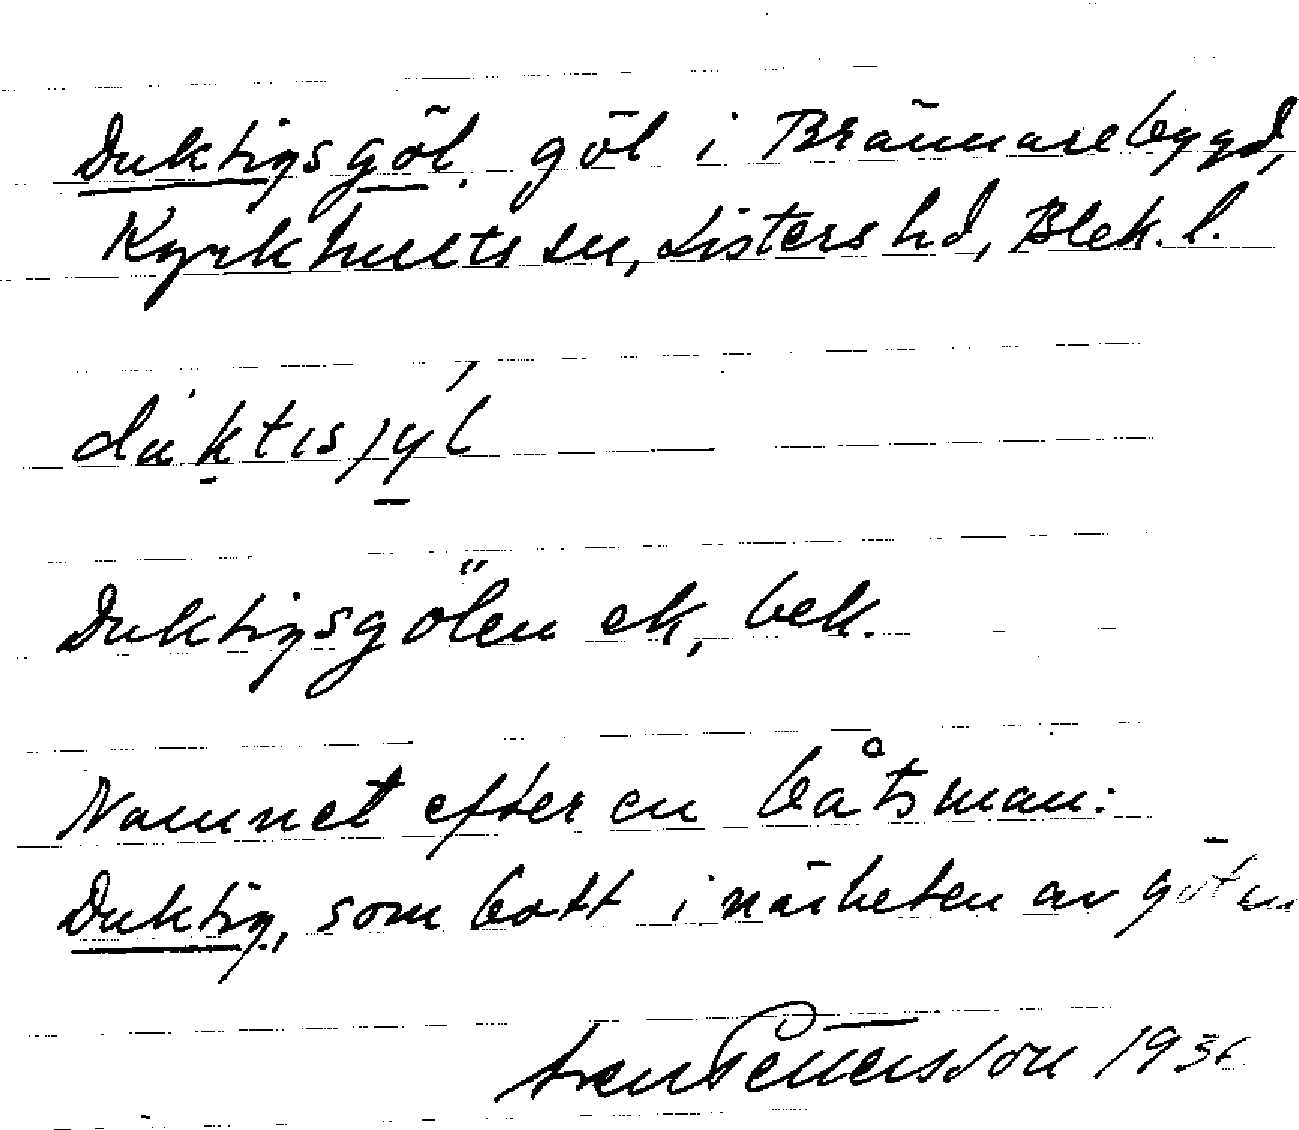 Duktigsgöl, göl i Brännarebygd,
Kyrkhults sn, Listers hd, Blek. l.
duktisjyl
Duktigsgölen ek, bek.
Namnet efter en båtsman:
Duktig, som bott i närheten av gölen
Sven Pettersson 1936